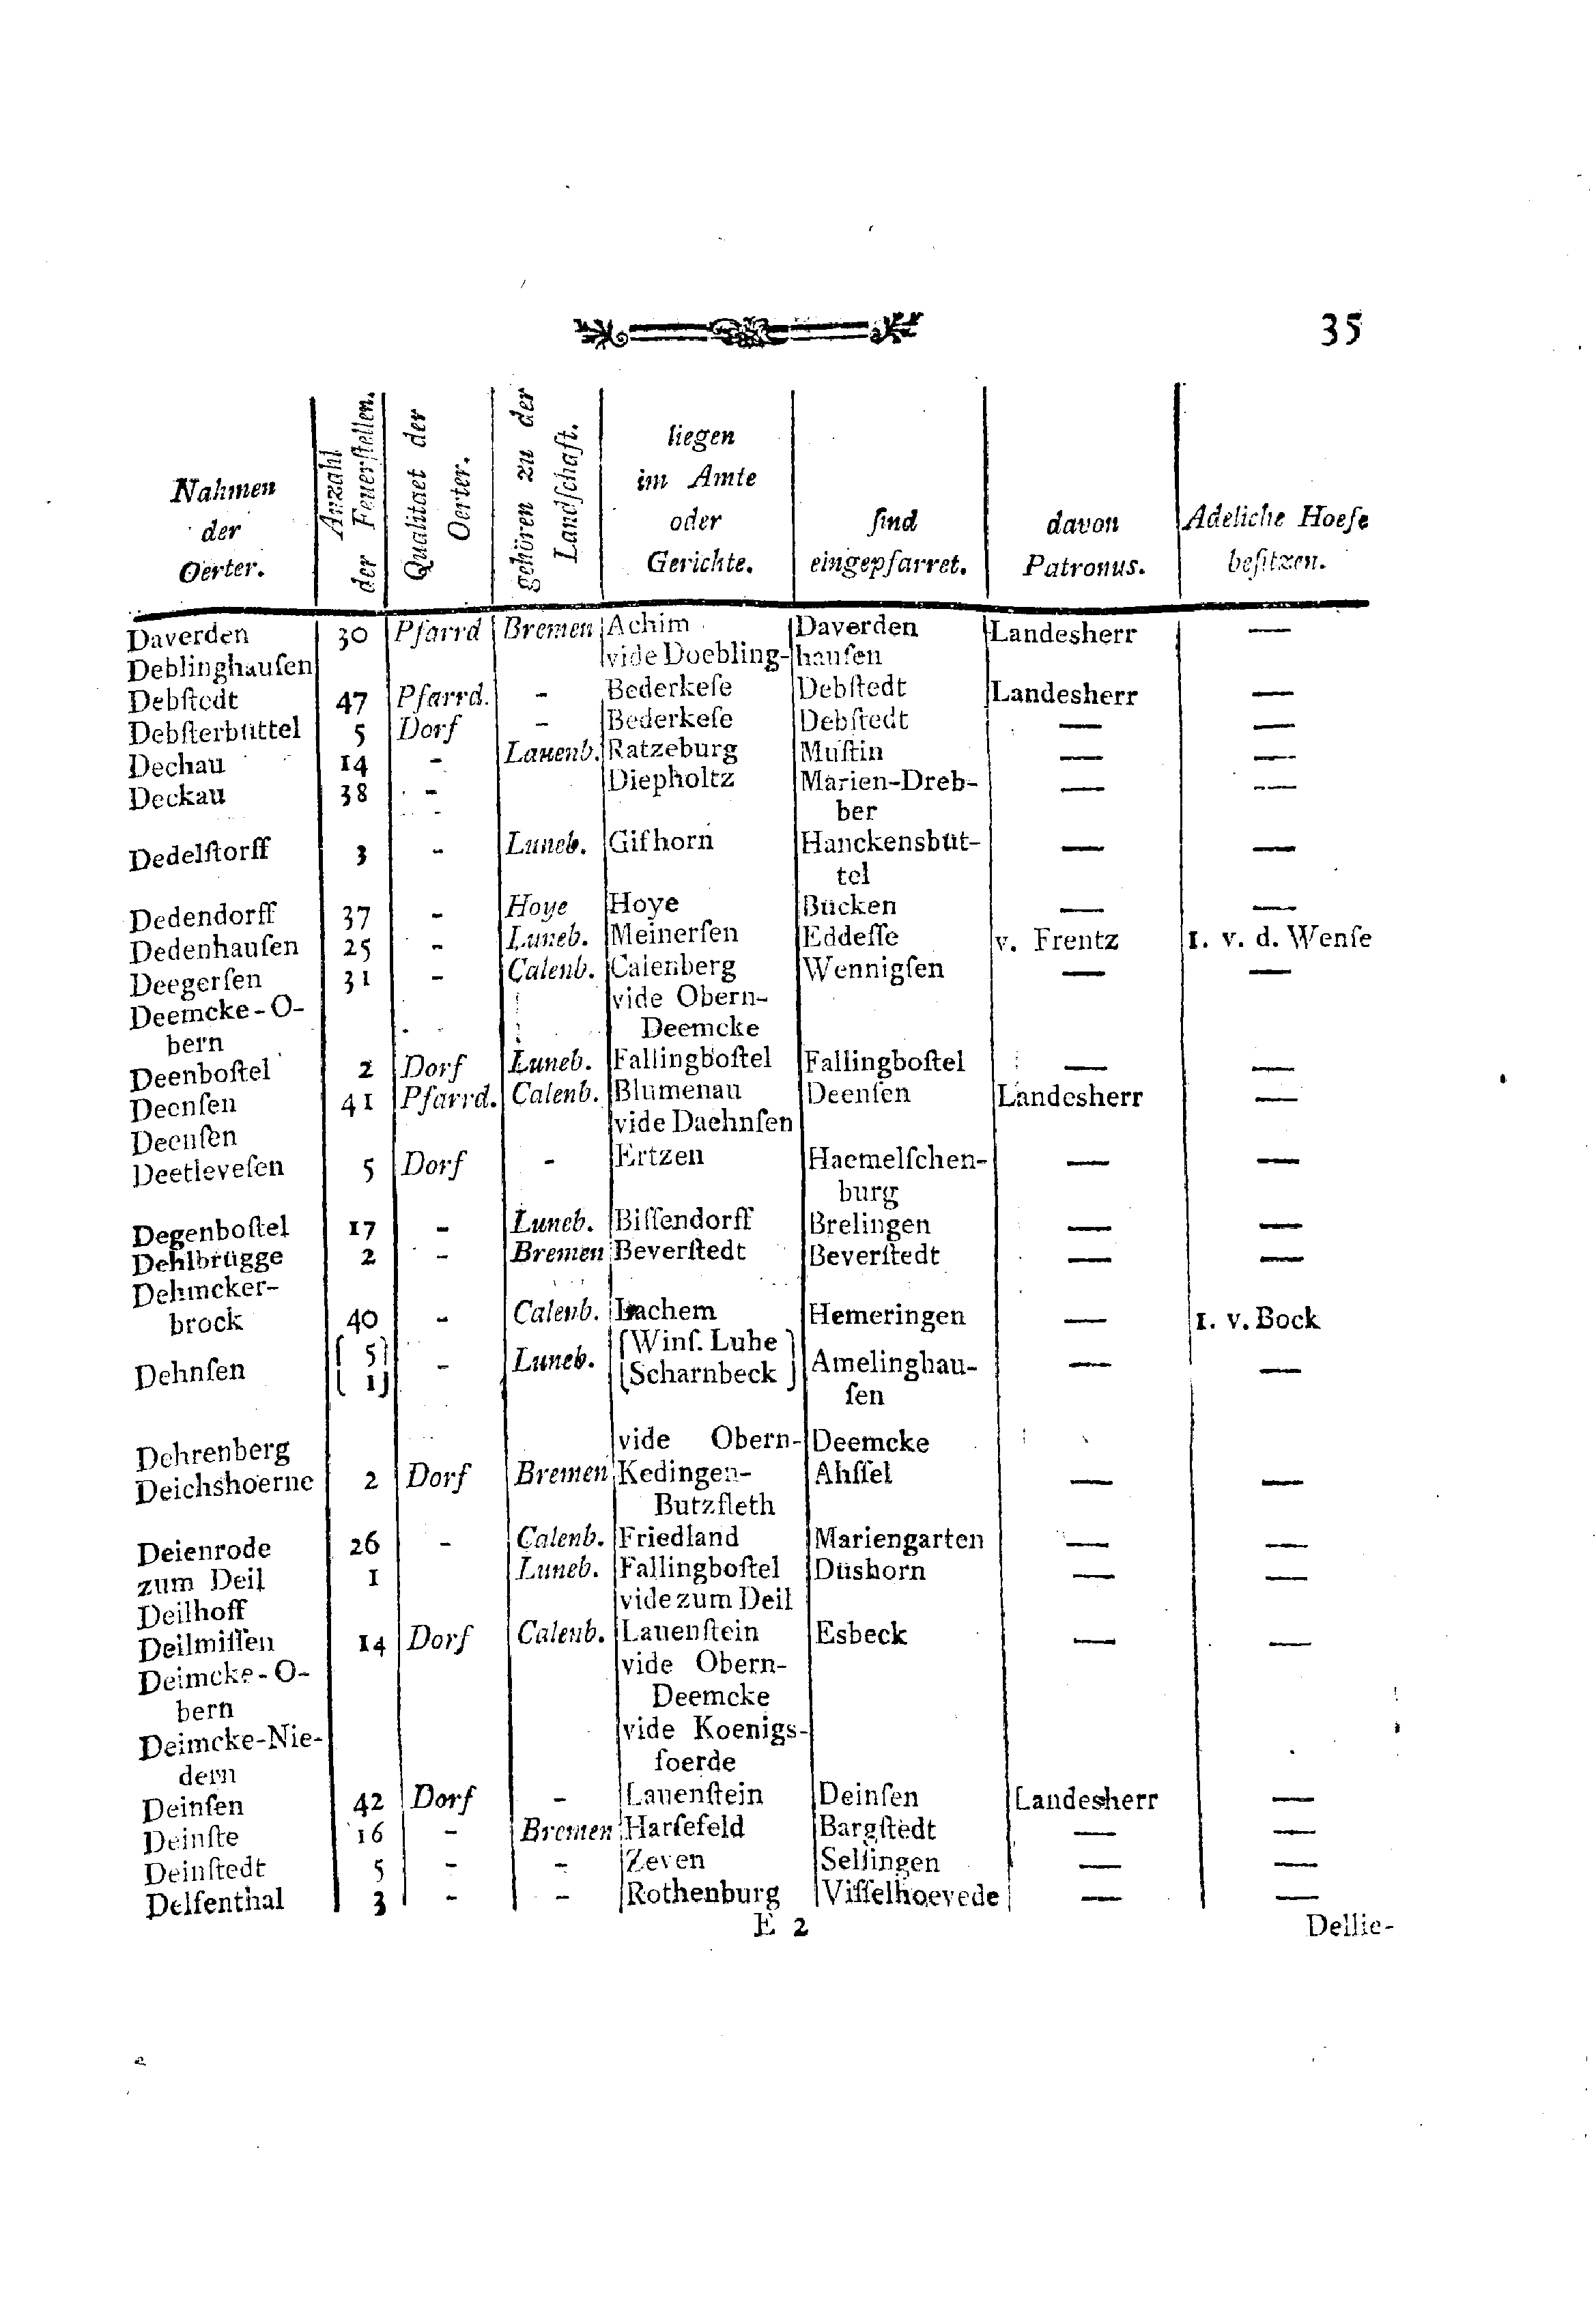 35
Nahmen der Oerter. | Anzahl der Feuerſtellen. | Qualitaet der Oerter. | gehören zu der Landſchaft. | liegen im Amte oder Gerichte. | ſind eingepfarret. | davon Patronus. | Adeliche Hoefe beſitzen.
Daverden 30 Pfarrd Bremen Achim Daverden Landesherr —
Deblinghauſen vide Doebling-hauſen
Debſtedt 47 Pfarrd. - Bederkeſe Debſtedt Landesherr —
Debſterbüttel 5 Dorf - Bederkeſe Debſtedt — —
Dechau 14 - Lauenb. Ratzeburg Muſtin — —
Deckau 38 - - Diepholtz Marien-Dreb- — —
ber
Dedelſtorff 3 - Luneb. Gifhorn Hanckensbüt- — —
tel
Dedendorff 37 - Hoye Hoye Bücken — —
Dedenhauſen 25 - Luneb. Meinerſen Eddeſſe v. Frentz 1. v. d. Wenſe
Deegerſen 31 - Calenb. Calenberg Wennigſen — —
Deemcke-O- vide Obern-
bern Deemcke
Deenboſtel 2 Dorf Luneb. Fallingboſtel Fallingboſtel — —
Deenſen 41 Pfarrd. Calenb. Blumenau Deenſen Landesherr —
Deenſen vide Daehnſen
Deetleveſen 5 Dorf - Ertzen Haemelſchen- — —
burg
Degenboſtel 17 - Luneb. Biſſendorff Brelingen — —
Dehlbrügge 2 - Bremen Beverſtedt Beverſtedt — —
Dehmcker-
brock 40 - Calenb. Lachem Hemeringen — 1. v. Bock
Dehnſen { 5 } - Luneb. { Winſ. Luhe } Amelinghau- — —
{ 1 } { Scharnbeck } ſen
Dehrenberg vide Obern-Deemcke
Deichshoerne 2 Dorf Bremen Kedingen- Ahſſel — —
Butzfleth
Deienrode 26 - Calenb. Friedland Mariengarten — —
zum Deil 1 Luneb. Fallingboſtel Düshorn — —
Deilhoff vide zum Deil
Deilmiſſen 14 Dorf Calenb. Lauenſtein Esbeck — —
Deimcke-O- vide Obern-
bern Deemcke
Deimcke-Nie- vide Koenigs-
dern foerde
Deinſen 42 Dorf - Lauenſtein Deinſen Landesherr —
Deinſte 16 - Bremen Harſefeld Bargſtedt — —
Deinſtedt 5 - - Zeven Selſingen — —
Delfenthal 3 - - Rothenburg Viſſelhoevede — —
E 2 Dellie-